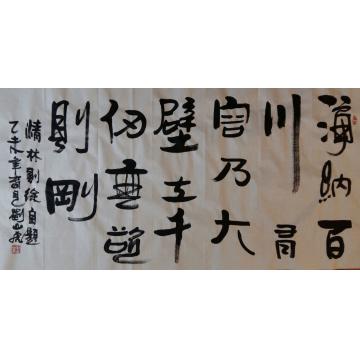 海納百
川有
容乃大
壁立千
仞無欲
則剛
清林則徐自題
乙未年月劉山